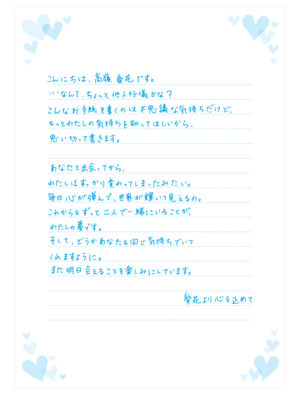 こんにちは、高嶺 葵花です。
…なんて、ちょっと他人行儀かな？
こんなお手紙を書くのは不思議な気持ちだけど、
もっとわたしの気持ちを知ってほしいから、
思い切って書きます。
あなたと出会ってから、
わたしはすっかり変わってしまったみたい。
毎日心が弾んで、世界が輝いて見えるの。
これからもずっと二人で一緒にいることが、
わたしの夢です。
そして、どうかあなたも同じ気持ちでいて
くれますように。
また明日会えることを楽しみにしています。
葵花より心を込めて